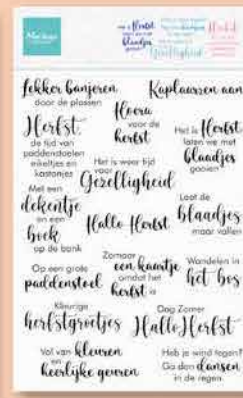 Marianne
lekker banjeren
door de plassen
Kaplaarzen aan
Hoera
voor de
herfst
Herfst
de tijd van
paddenstoelen
eikeltjes en
kastanjes
Het is Herfst
laten we met
blaadjes
gooien
Het is weer tijd
voor
Gezelligheid
Met een
dekentje
en een
boek
op de bank
Hallo Herfst
Laat de
blaadjes
maar vallen
Op een grote
paddenstoel
Zomaar
een kaartje
omdat het
herfst is
Wandelen in
het bos
Kleurige
herfstgroetjes
Dag Zomer
Hallo Herfst
Vol van kleuren
en
heerlijke geuren
Heb je wind tegen?
Ga dan dansen
in de regen